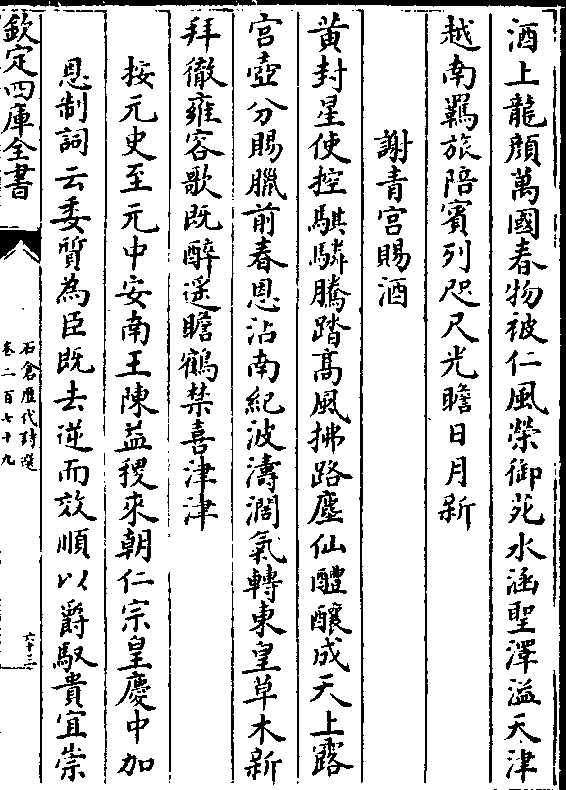 酒上龍顔萬國春物被仁風榮御苑水涵聖澤溢天津
越南羈旅陪賓列咫尺光瞻日月新
謝青宮賜酒
黄封星使控騏驎騰踏髙風拂路塵仙醴釀成天上露
宮壺分賜臘前春恩沾南紀波濤濶氣轉東皇草木新
拜徹雍容歌既醉遥瞻鶴禁喜津津
按元史至元中安南王陳益稷來朝仁宗皇慶中加
恩制詞云委質為臣既去逆而效順以爵馭貴宜崇
欽定四庫全書
石倉歴代詩選
卷二百七十九
六十三